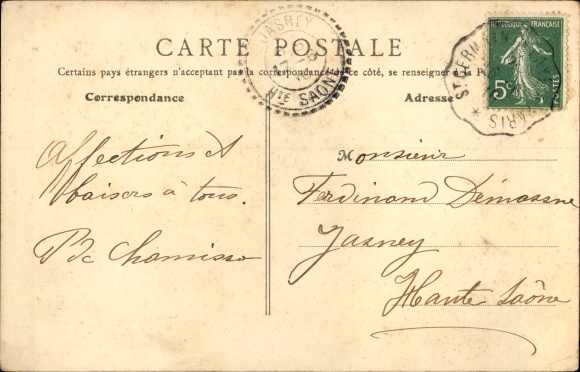 CARTE POSTALE
Certains pays étrangers n'acceptant pas la correspondance de ce côté, se renseigner à la
Correspondance
Adresse
JASNEY
HTE SAÔNE
ST GERM
PARIS
RÉPUBLIQUE FRANÇAISE
5c
POSTES
Affections et
baisers à tous.
Chamisso
Monsieur
Ferdinand
Jasney
Haute Saône